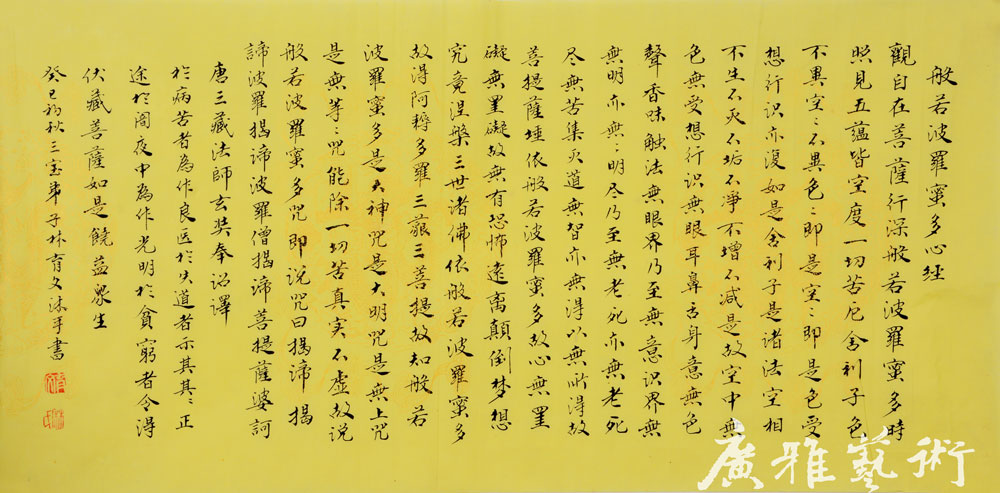 般若波羅蜜多心经
觀自在菩薩行深般若波羅蜜多時
照見五蘊皆空度一切苦厄舍利子色
不異空〻不異色〻即是空〻即是色受
想行识亦復如是舍利子是诸法空相
不生不灭不垢不淨不增不减是故空中無
色無受想行识無眼耳鼻舌身意無色
聲香味触法無眼界乃至無意识界無
無明亦無〻明尽乃至無老死亦無老死
尽無苦集灭道無智亦無得以無所得故
菩提薩埵依般若波羅蜜多故心無罣
礙無罣礙故無有恐怖遠离顛倒梦想
究竟涅槃三世诸佛依般若波羅蜜多
故得阿耨多羅三藐三菩提故知般若
波羅蜜多是大神咒是大明咒是無上咒
是無等〻咒能除一切苦真实不虚故说
般若波羅蜜多咒即说咒曰揭谛揭
諦波羅揭谛波羅僧揭谛菩提薩婆訶
唐三藏法師玄奘奉诏譯
於病苦者為作良医於失道者示其其〻正
途於闇夜中為作光明於貧窮者令得
伏藏菩薩如是饒益眾生
癸巳初秋三宝弟子林育文沐手書
廣雅藝術